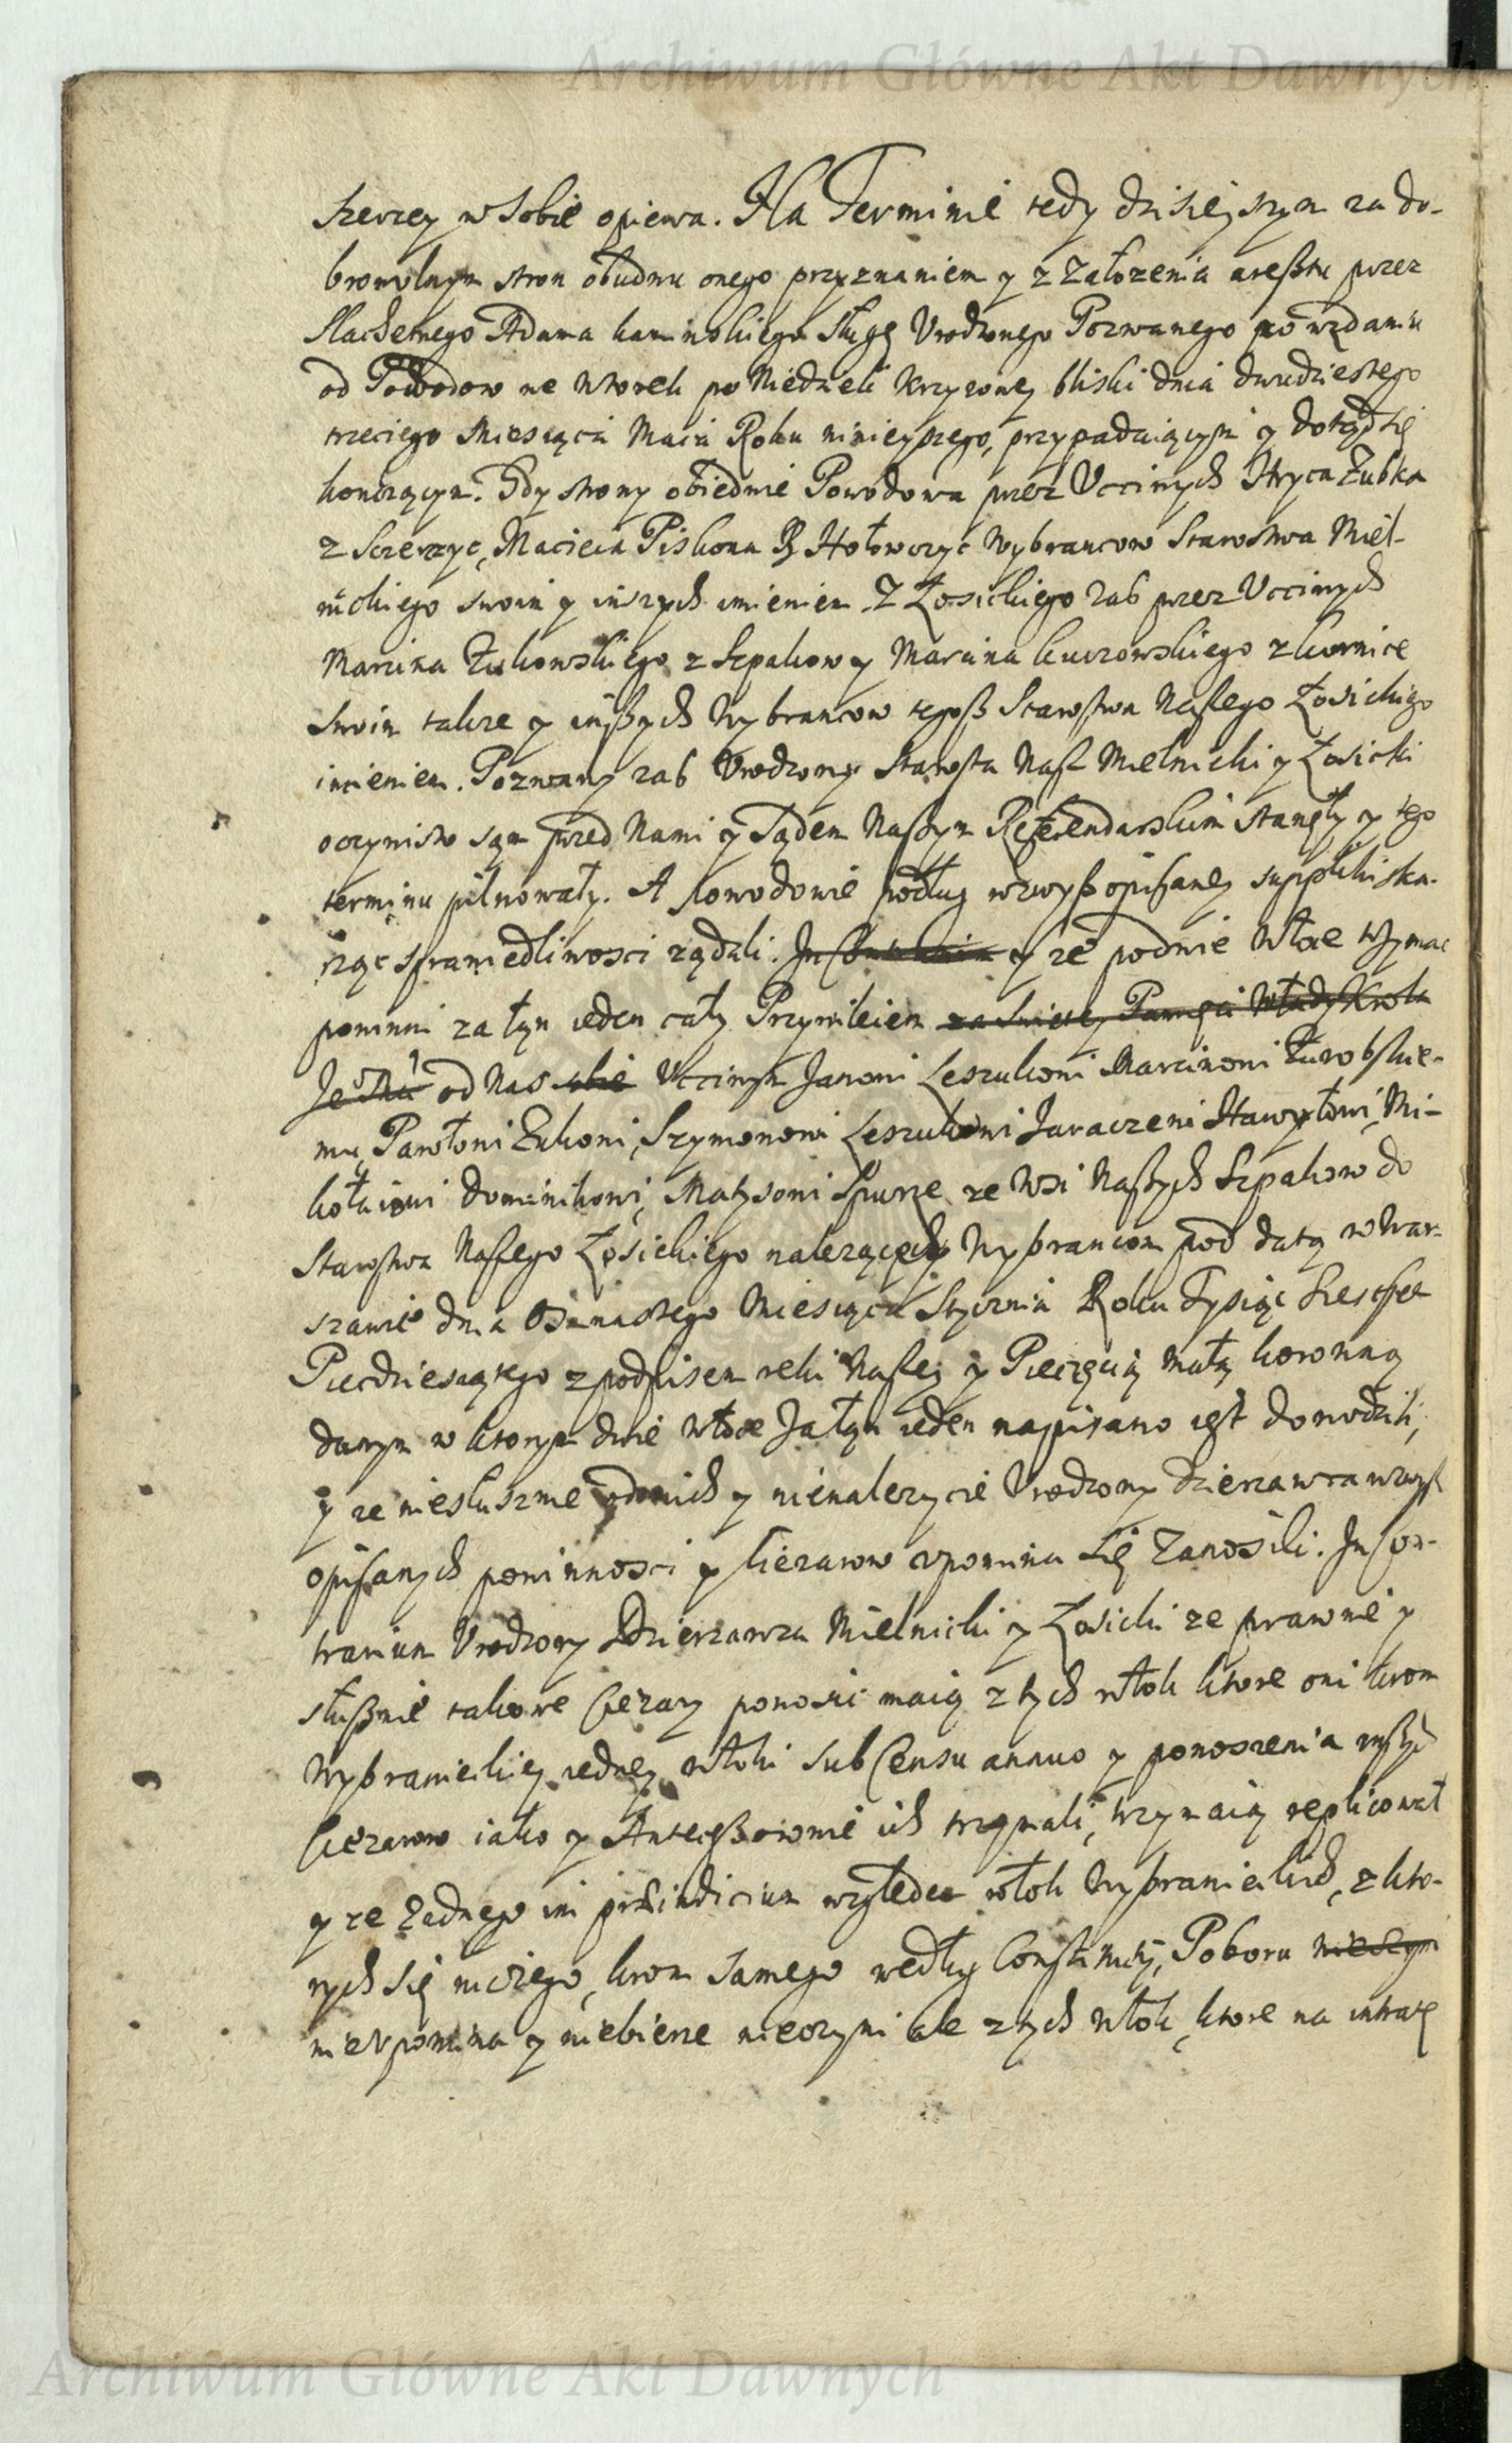 Archiwum Główne Akt Dawnych
szerzey w sobie opiewa. Na Terminie tedy dzisieyszym za do-
browolnym stron obudwu onego przyznaniem y z założenia aresztu przez
Slachetnego Adama Kaminskiego sługę Urodzonego Pozwanego po wzdaniu
od Powodow we wtorek po Niedzieli Krzyzowey bliski dnia dwudziestego
trzeciego Miesiąca Maia Roku ninieyszego, przypadaiącym y dotąd się
konczącym. Gdy strony obiedwie Powodowa przez Uccziwych Hryca Zubka
z Szerzyc, Macieia Piskona z Hołowczyc Wybrancow Starostwa Miel-
nickiego swoim y inszych imieniem. Z Łosickiego zas przez Uccziwych
Marcina Zukowskiego z Szpakow y Marcina Kuczowskiego z Kornice
swoim takze y inszych Wybrancow tegosz Starostwa Naszego Łosickiego
imieniem. Pozwany zas Urodzony Starosta Nasz Mielnicki y Łosicki
oczywisto sam przed Nami y Sądem Naszym Referendarskim stanęły y tego
terminu pilnowały. A Powodowie podług wzwysz opisaney suppliki ska-
rząc sprawiedliwosci ządali. y ze podwie Włoce trzymac
powinni za łan ieden cały Przywileiem za Swietey Pamięci Władysł Krola
Je Mci od Nas Uccziwym Janowi Leszukowi Marcinowi Zurobskie-
mu, Pawłowi Zukowi, Szymonowi Leszukowi Jaraczewi Hawryłowi, Mi-
kołaiowi Dominikowi, Matysowi Spurze ze Wsi Naszych Szpakow do
Starostwa Naszego Łosickiego nalezących Wybrancom pod datą w War-
szawie dnia Osmnastego Miesiąca Stycznia Roku Tysiąc Szescset
Piecdziesiątego z podpisem ręki Naszey y Pieczęcią małą koronną
danym w ktorym dwie Włoce za łan ieden napisano iest dowodzili,
y ze niesłusznie od nich y nienalezycie Urodzony Dzierzawca wzwysz
opisanych powinnosci y Ciezarow upomina się zanosili. In Con-
trarium Urodzony Dzierzawca Mielnicki y Łosicki ze prawnie y
słusznie takowe Ciezary ponosic maią z tych włok ktore oni krom
Wybranieckiey iedney włoki sub Censu annuo y ponoszenia inszych
Ciezarow iako y Antecessorowie ich trzymali, trzymaią replicował
y ze zadnego im praeiudicium względem włok Wybranieckich, z kto-
rych się niczego, krom samego według Constitutiy, Poboru
nie upomina y niebierze nieczyni ale z tych włok, ktore na intratę
Archiwum Główne Akt Dawnych